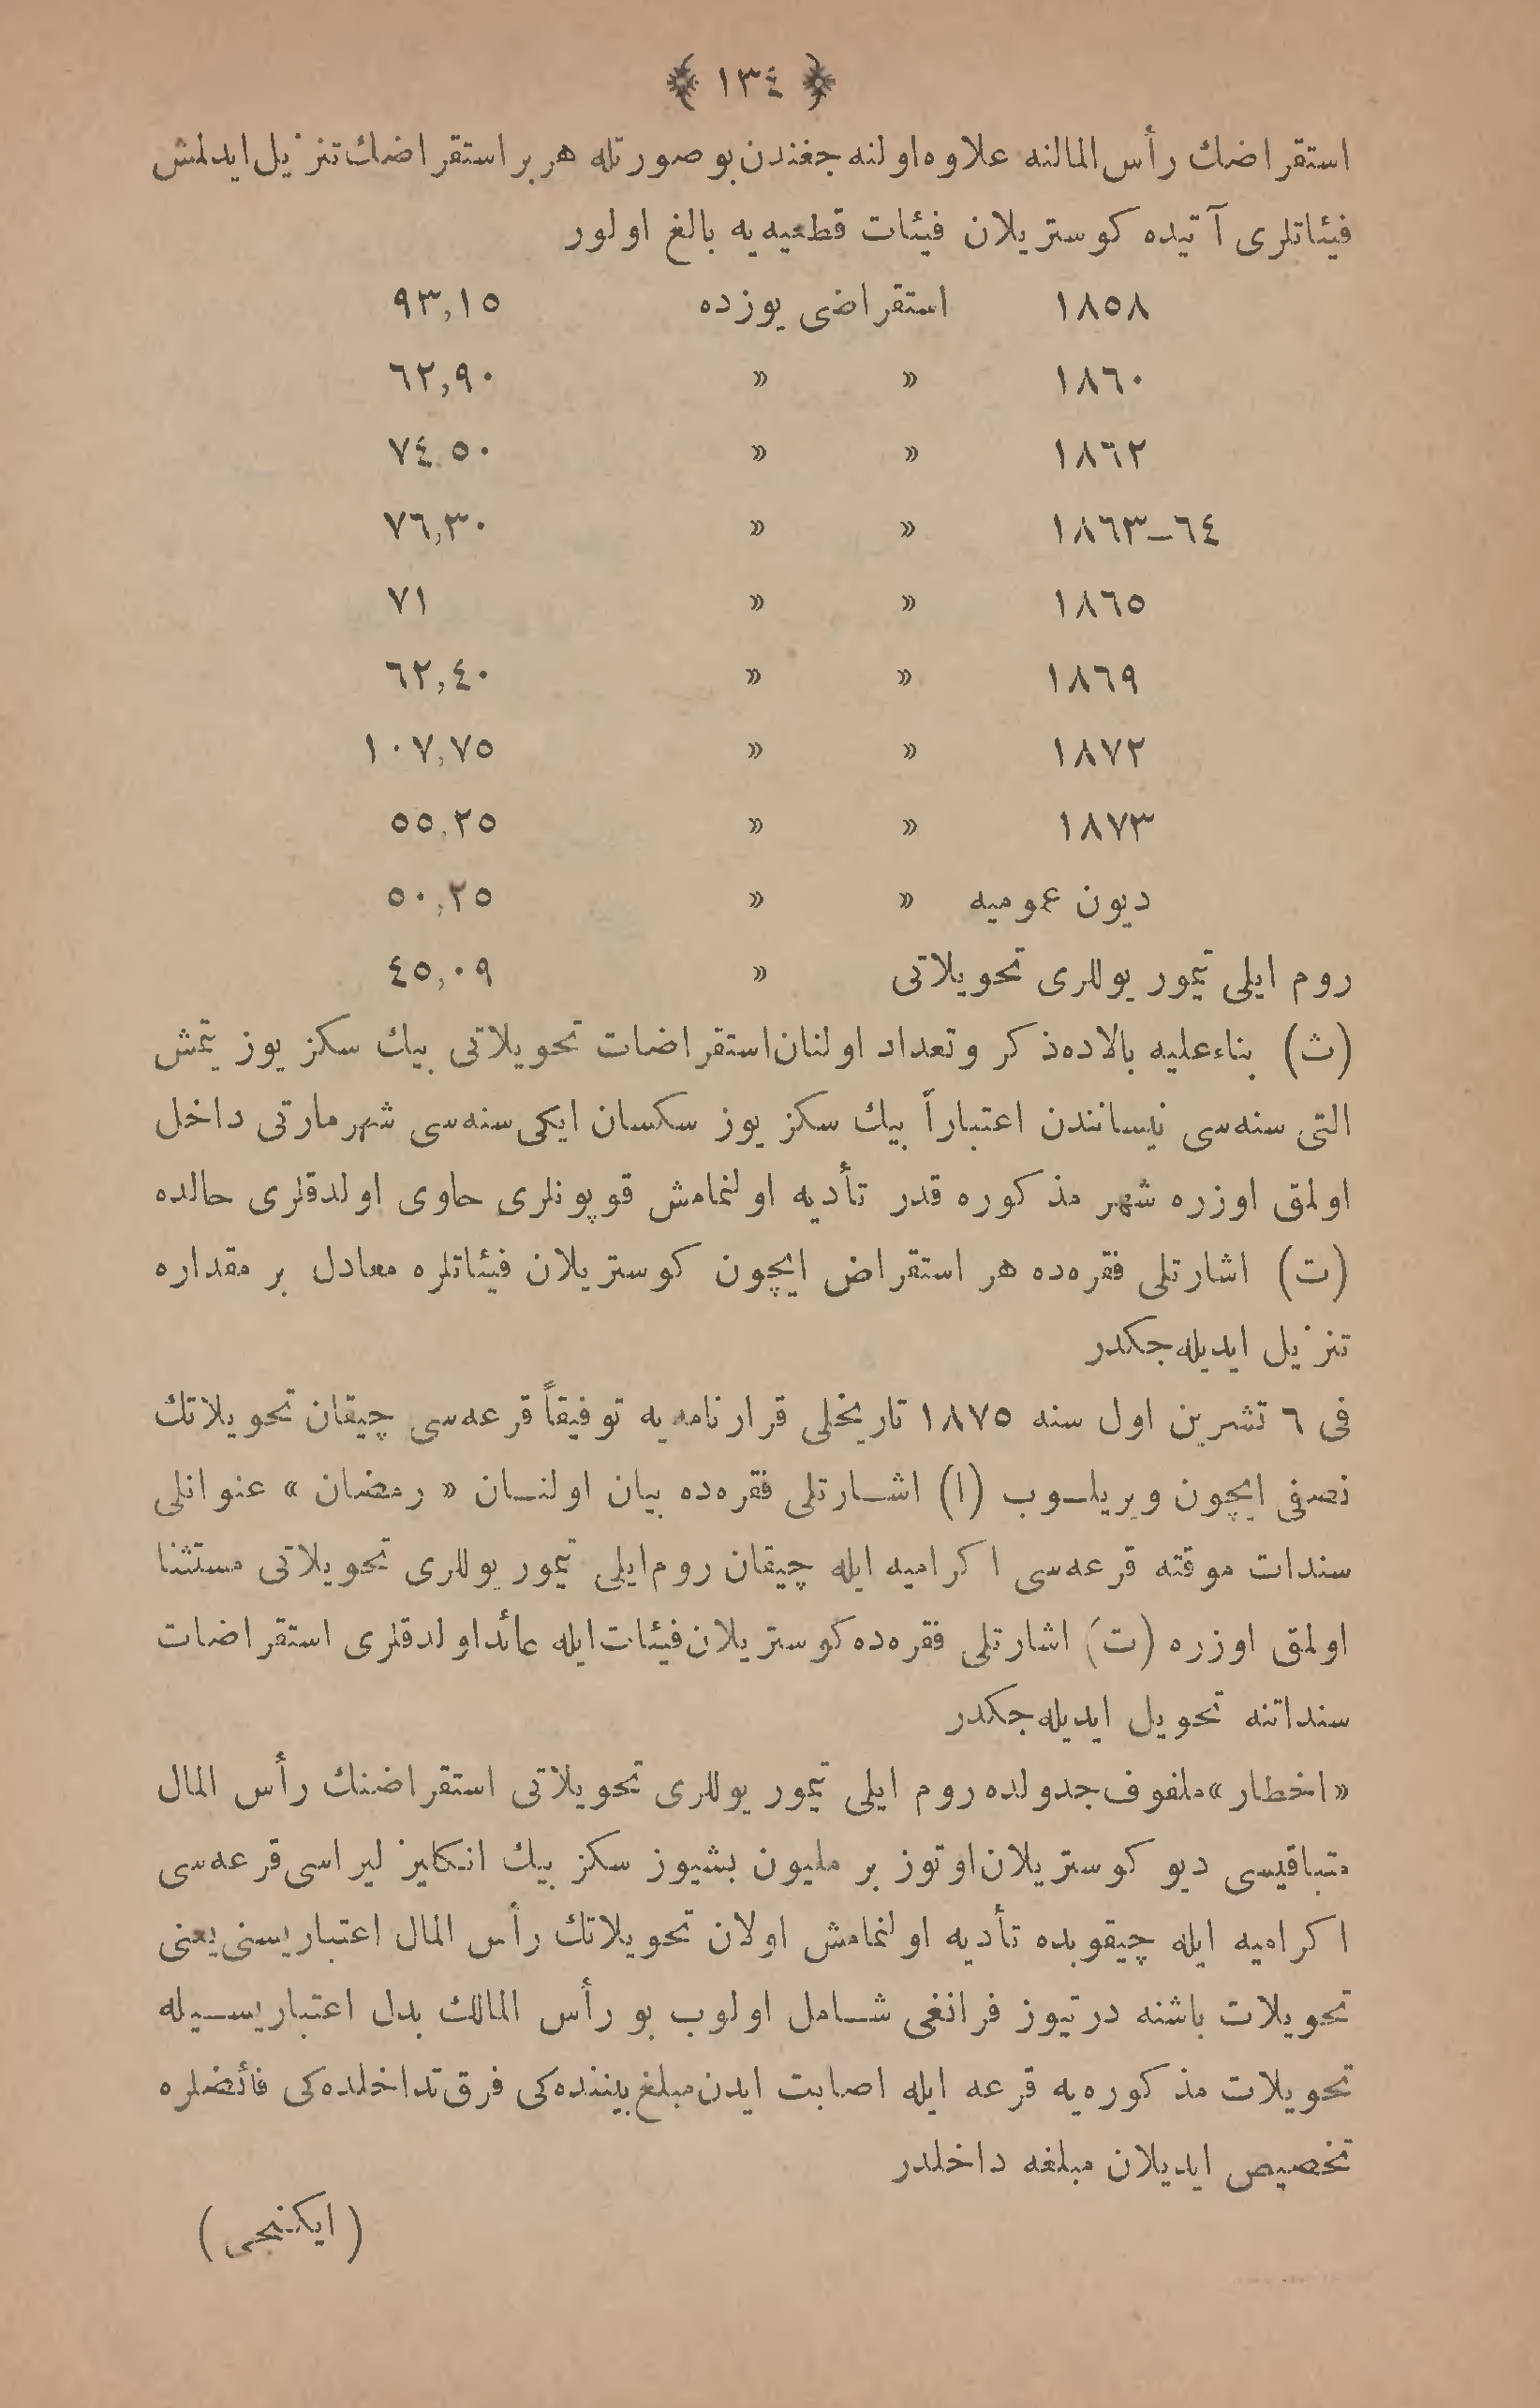 ﴿ ١٣٤ ﴾
استقراضك رأس‌المالنه علاوه‌اولنه‌جغندن‌بو صورتله هر بر استقراضك تنزیل ایدلمش
فیئاتلری آتیده كوستریلان فیئات قطعیه‌یه بالغ اولور
١٨٥٨ استقراضی یوزده ٩٣,١٥
١٨٦٠ » » ٦٢,٩٠
١٨٦٢ » » ٧٤.٥٠
١٨٦٣–٦٤ » » ٧٦,٣٠
١٨٦٥ » » ٧١
١٨٦٩ » » ٦٢,٤٠
١٨٧٢ » » ١٠٧,٧٥
١٨٧٣ » » ٥٥,٢٥
دیون عمومیه » » ٥٠,٢٥
روم ایلی تیمور یوللری تحویلاتی » ٤٥,٠٩
(ث) بناءعلیه بالاده‌ذكر وتعداد اولنان‌استقراضات تحویلاتی بیك سكز یوز یتمش
التی سنه‌سی نیسانندن اعتباراً بیك سكز یوز سكسان ایكی‌سنه‌سی شهرمارتی داخل
اولمق اوزره شهر مذكوره قدر تأدیه اولنمامش قوپونلری حاوی اولدقلری حالده
(ت) اشارتلی فقره‌ده هر استقراض ایچون كوستریلان فیئاتلره معادل بر مقداره
تنزیل ایدیله‌جكدر
فی ٦ تشرین اول سنه ١٨٧٥ تاریخلی قرارنامه‌یه توفیقاً قرعه‌سی چیقان تحویلاتك
نصفی ایچون ویریلـوب (ا) اشـارتلی فقره‌ده بیان اولنـان « رمضان » عنوانلی
سندات موقته قرعه‌سی اكرامیه ایله چیقان روم‌ایلی تیمور یوللری تحویلاتی مستثنا
اولمق اوزره (ت) اشارتلی فقره‌ده‌كوستریلان‌فیئات‌ایله عائداولدقلری استقراضات
سنداتنه تحویل ایدیله‌جكدر
« اخطار » ملفوف‌جدولده روم ایلی تیمور یوللری تحویلاتی استقراضنك رأس المال
متباقیسی دیو كوستریلان‌اوتوز بر ملیون بشیوز سكز بیك انكلیز لیراسی‌قرعه‌سی
اكرامیه ایله چیقوبده تأدیه اولنمامش اولان تحویلاتك رأس المال اعتباریسنی‌یعنی
تحویلات باشنه درتیوز فرانغی شـامل اولوب بو رأس المالك بدل اعتباریسـیله
تحویلات مذكوره‌یه قرعه ایله اصابت ایدن‌مبلغ‌بیننده‌كی فرق‌تداخلده‌كی فائضلره
تخصیص ایدیلان مبلغه داخلدر
( ایكنجی )